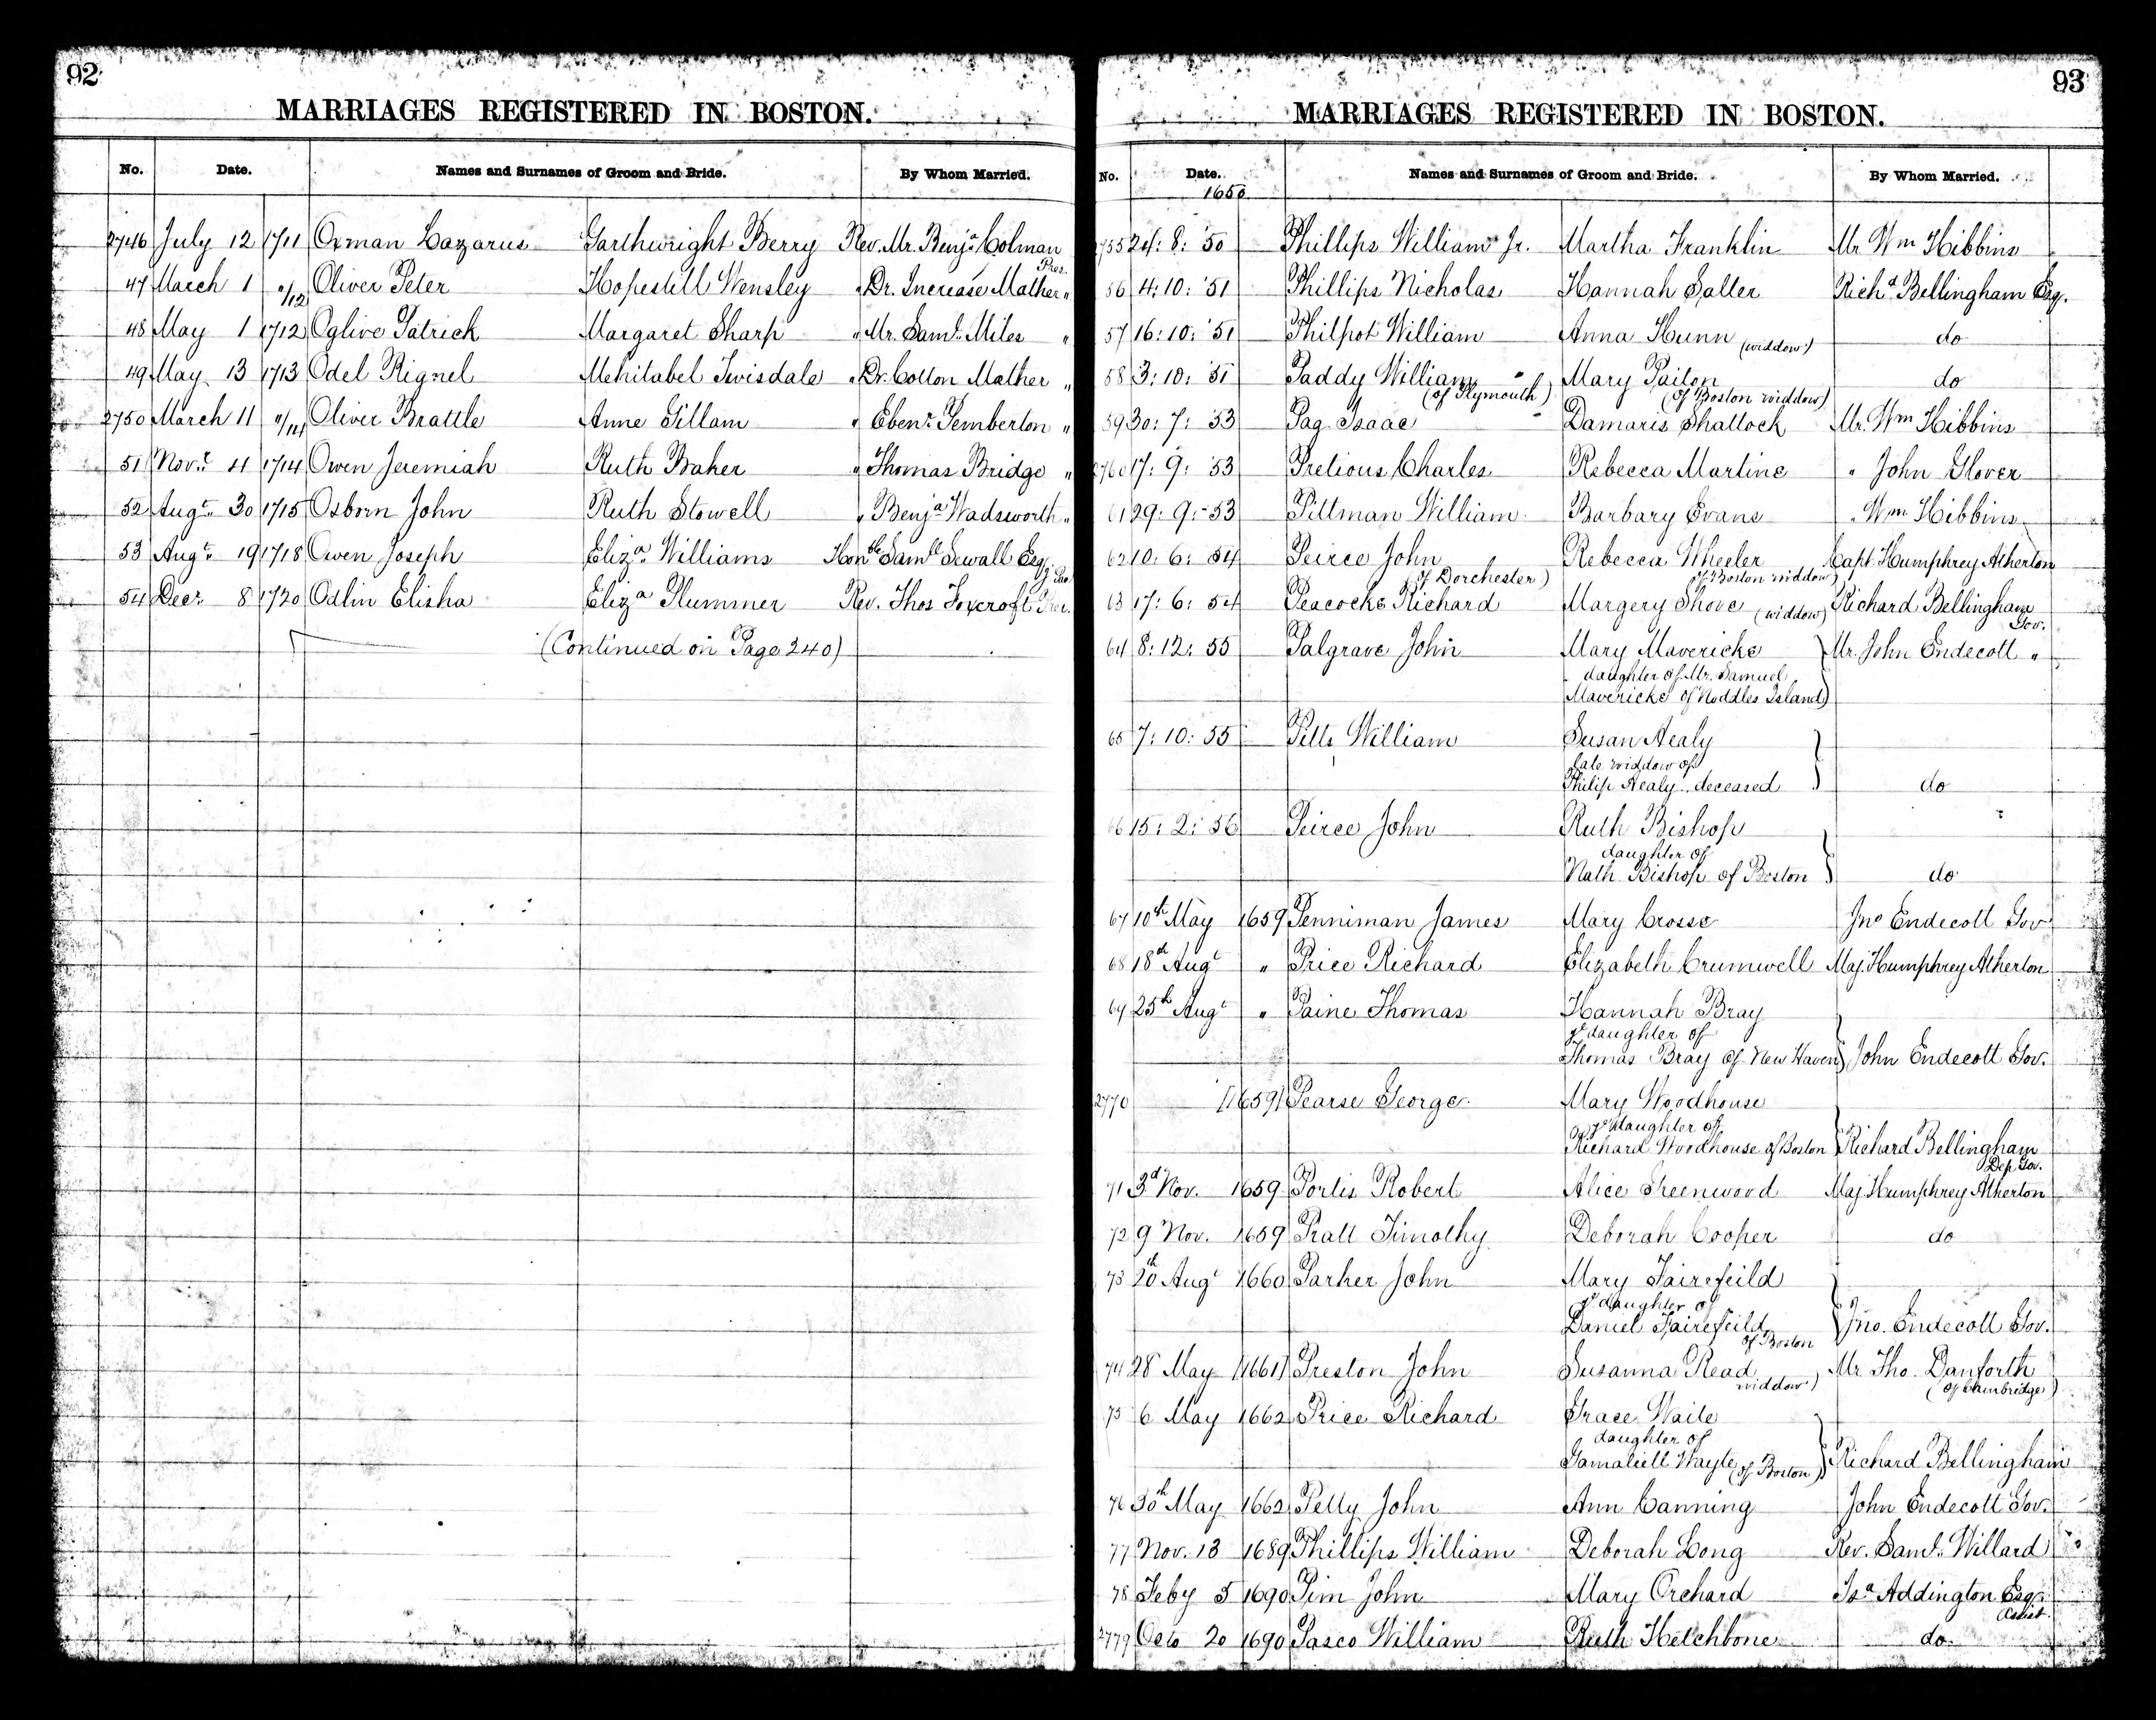 92
MARRIAGES REGISTERED IN BOSTON.
No. Date. Names and Surnames of Groom and Bride. By Whom Married.
2746 July 12 1711 Oxman Lazarus Garthwright Berry Rev. Mr. Benja Colman
Pres.
47 March 1 "/12 Oliver Peter Hopestill Wensley " Dr. Increase Mather "
48 May 1 1712 Oglive Patrick Margaret Sharp " Mr. Saml. Miles "
49 May 13 1713 Odel Rignel Mehitabel Twisdale " Dr. Cotton Mather "
2750 March 11 "/14 Oliver Brattle Anne Gillam " Ebenr. Pemberton "
51 Novr. 4 1714 Owen Jeremiah Ruth Baker " Thomas Bridge "
52 Augt. 30 1715 Osborn John Ruth Stowell " Benja Wadsworth "
53 Augt. 19 1718 Owen Joseph Eliza Williams Honble Samll Sewall Esq.
54 Decr. 8 1720 Odlin Elisha Eliza Plummer Rev. Thos Foxcroft Pres.
(Continued on Page 240)
93
MARRIAGES REGISTERED IN BOSTON.
No. Date. Names and Surnames of Groom and Bride. By Whom Married.
1650
2755 24: 8: '50 Phillips William Jr. Martha Franklin Mr Wm Hibbins
56 4: 10: '51 Phillips Nicholas Hannah Salter Richd. Bellingham Esq.
57 16: 10: '51 Philpot William Anna Hunn (widdow) do
58 3: 10: '51 Paddy William Mary Paiton do
(of Plymouth) (of Boston widdow)
59 30: 7: '53 Pag Isaac Damaris Shattock Mr. Wm Hibbins
2760 17: 9: '53 Pretious Charles Rebecca Martine " John Glover
61 29: 9: 53 Pittman William Barbary Evans " Wm Hibbins
62 10: 6: 54 Peirce John Rebecca Wheeler Capt. Humphrey Atherton
of Dorchester) of Boston widdow)
63 17: 6: 54 Peacocke Richard Margery Shove (widdow) Richard Bellingham
Gov.
64 8: 12: 55 Palgrave John Mary Mavericke Mr. John Endecott "
daughter of Mr. Samuel
Mavericke of Noddles Island)
65 7: 10: 55 Pitts William Susan Healy
late widdow of
Philip Healy deceased do
66 15: 2: 56 Peirce John Ruth Bishop
daughter of
Nath. Bishop of Boston do
67 10th May 1659 Penniman James Mary Crosse Jno Endecott Gov
68 18th Augt " Price Richard Elizabeth Crumwell Maj. Humphrey Atherton
69 25th Augt " Paine Thomas Hannah Bray
ye daughter of
Thomas Bray of New Haven) John Endecott Gov.
2770 [1659] Pearse George Mary Woodhouse
ye daughter of
Richard Woodhouse of Boston Richard Bellingham
Dep Gov.
71 3d Nov. 1659 Portis Robert Alice Greenwood Maj. Humphrey Atherton
72 9 Nov. 1659 Pratt Timothy Deborah Cooper do
73 20th Augt 1660 Parker John Mary Fairefeild
ye daughter of
Daniel Fairefeild Jno. Endecott Gov.
of Boston
74 28 May [1661] Preston John Susanna Read Mr. Tho. Danforth
widdow) (of Cambridge)
75 6 May 1662 Price Richard Grace Waite
daughter of
Gamaliell Wayte (of Boston) Richard Bellingham
76 30th May 1662 Petty John Ann Canning John Endecott Gov.
77 Nov. 13 1689 Phillips William Deborah Long Rev. Saml. Willard
78 Feby 5 1690 Pim John Mary Orchard Isa Addington Esq.
Assist.
2779 Octo 20 1690 Pasco William Ruth Hetchbone do.